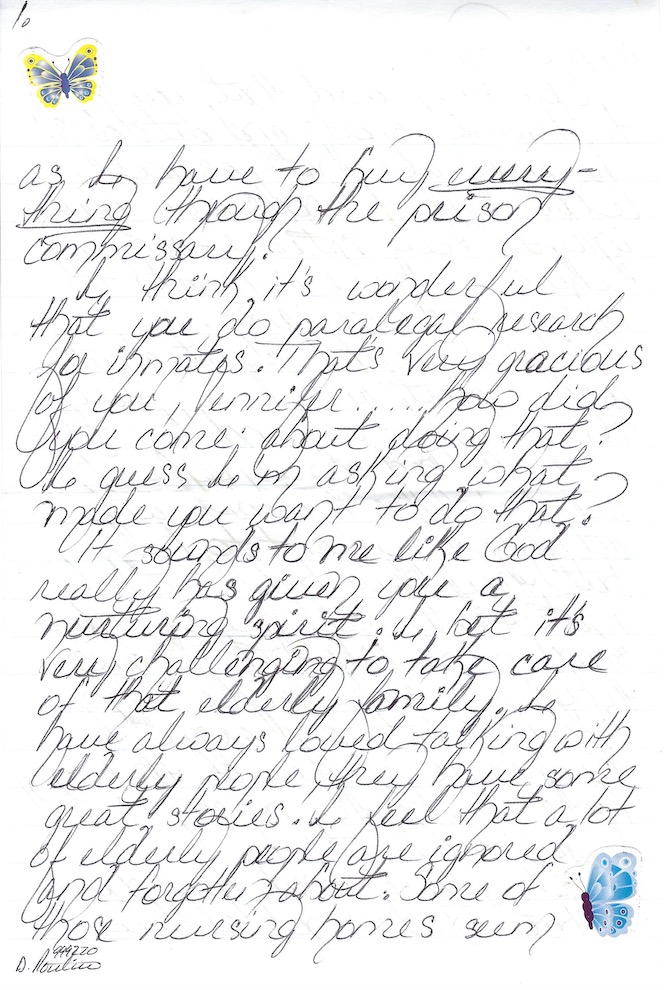 as I have to buy every-
thing through the prison
commissary.
I think it's wonderful
that you do paralegal research
for inmates. That's very gracious
of you, Jennifer..... how did
you come about doing that?
I guess I'm asking what
made you want to do that?
It sounds to me like God
really has given you a
nurturing spirit. I bet it's
very challenging to take care
of that elderly family. I
have always loved talking with
elderly people they have some
great stories. I feel that a lot
of elderly people are ignored
and forgotten about. Some of
those nursing homes seem
999220
D. Routier